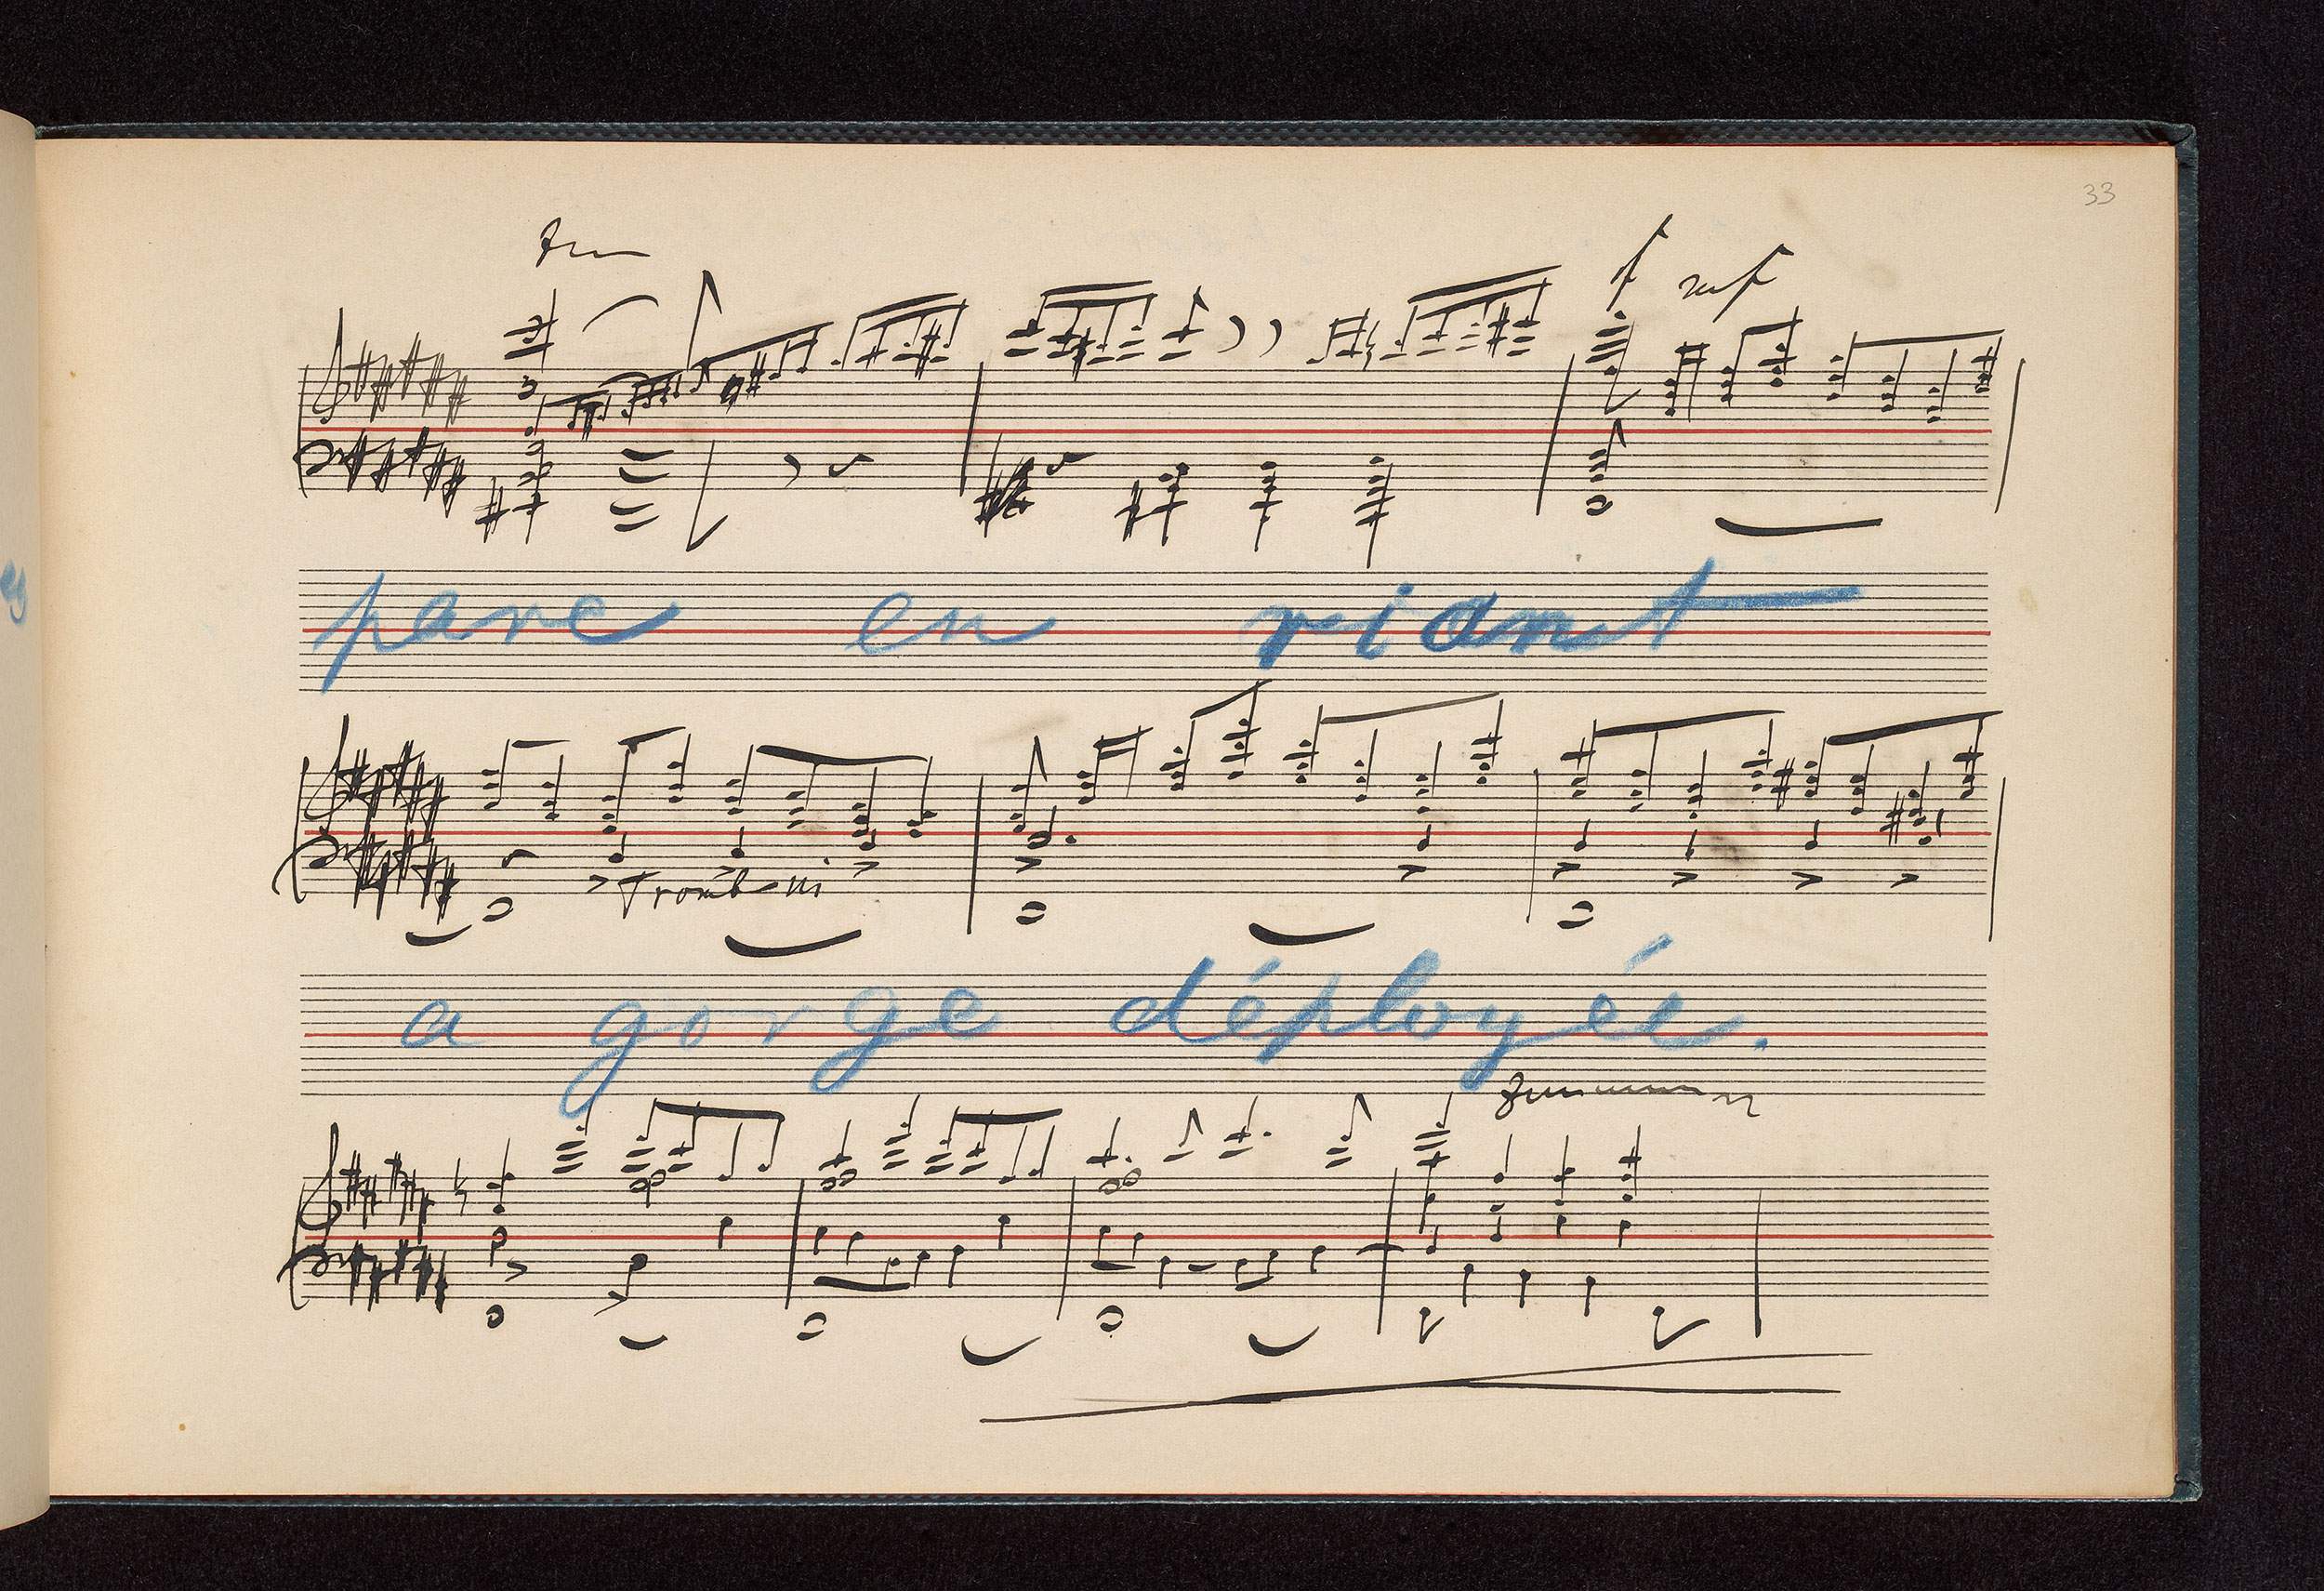 33
f mf
parc en riant
Tromboni
a gorge déployée.